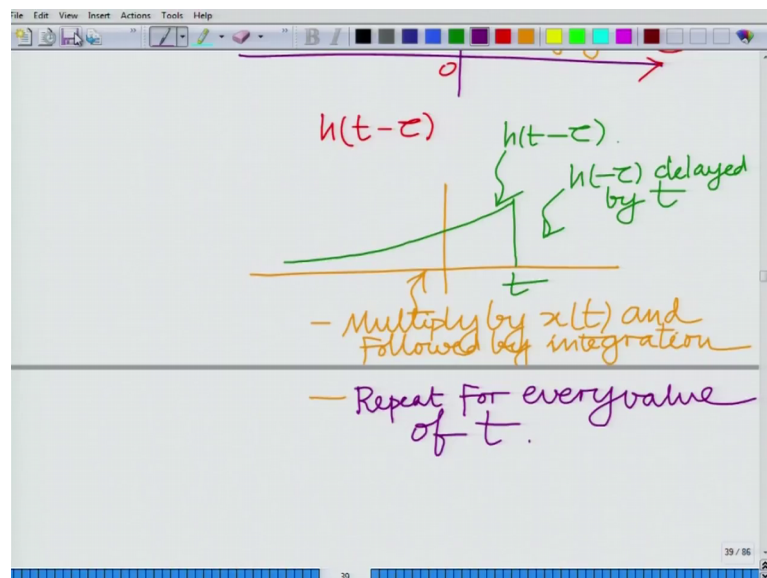 File Edit View Insert Actions Tools Help
B I
0
h(t-τ)
h(t-τ).
h(-τ) delayed
by t
t
- Multiply by x(t) and
Followed by integration
- Repeat For every value
of t.
39 / 86
39